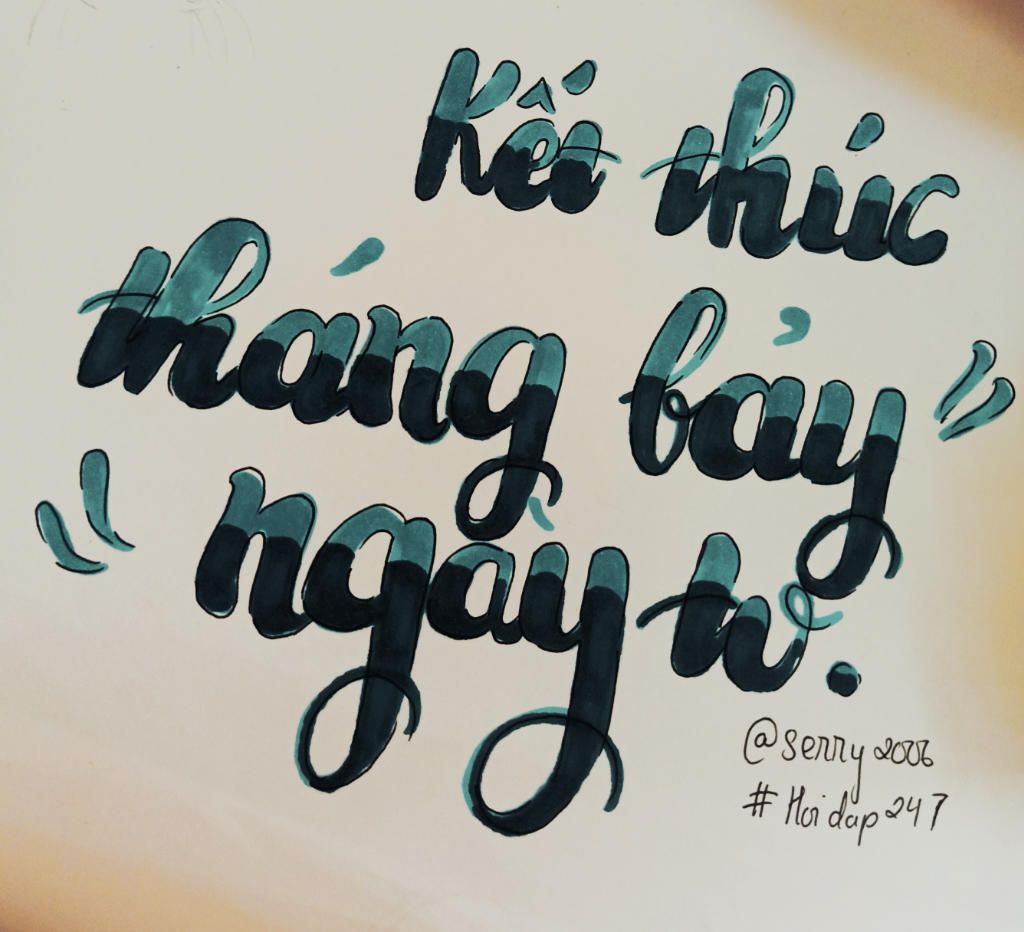 Kết thúc
tháng bảy
ngày tư.
@serry2006
#Hoidap247